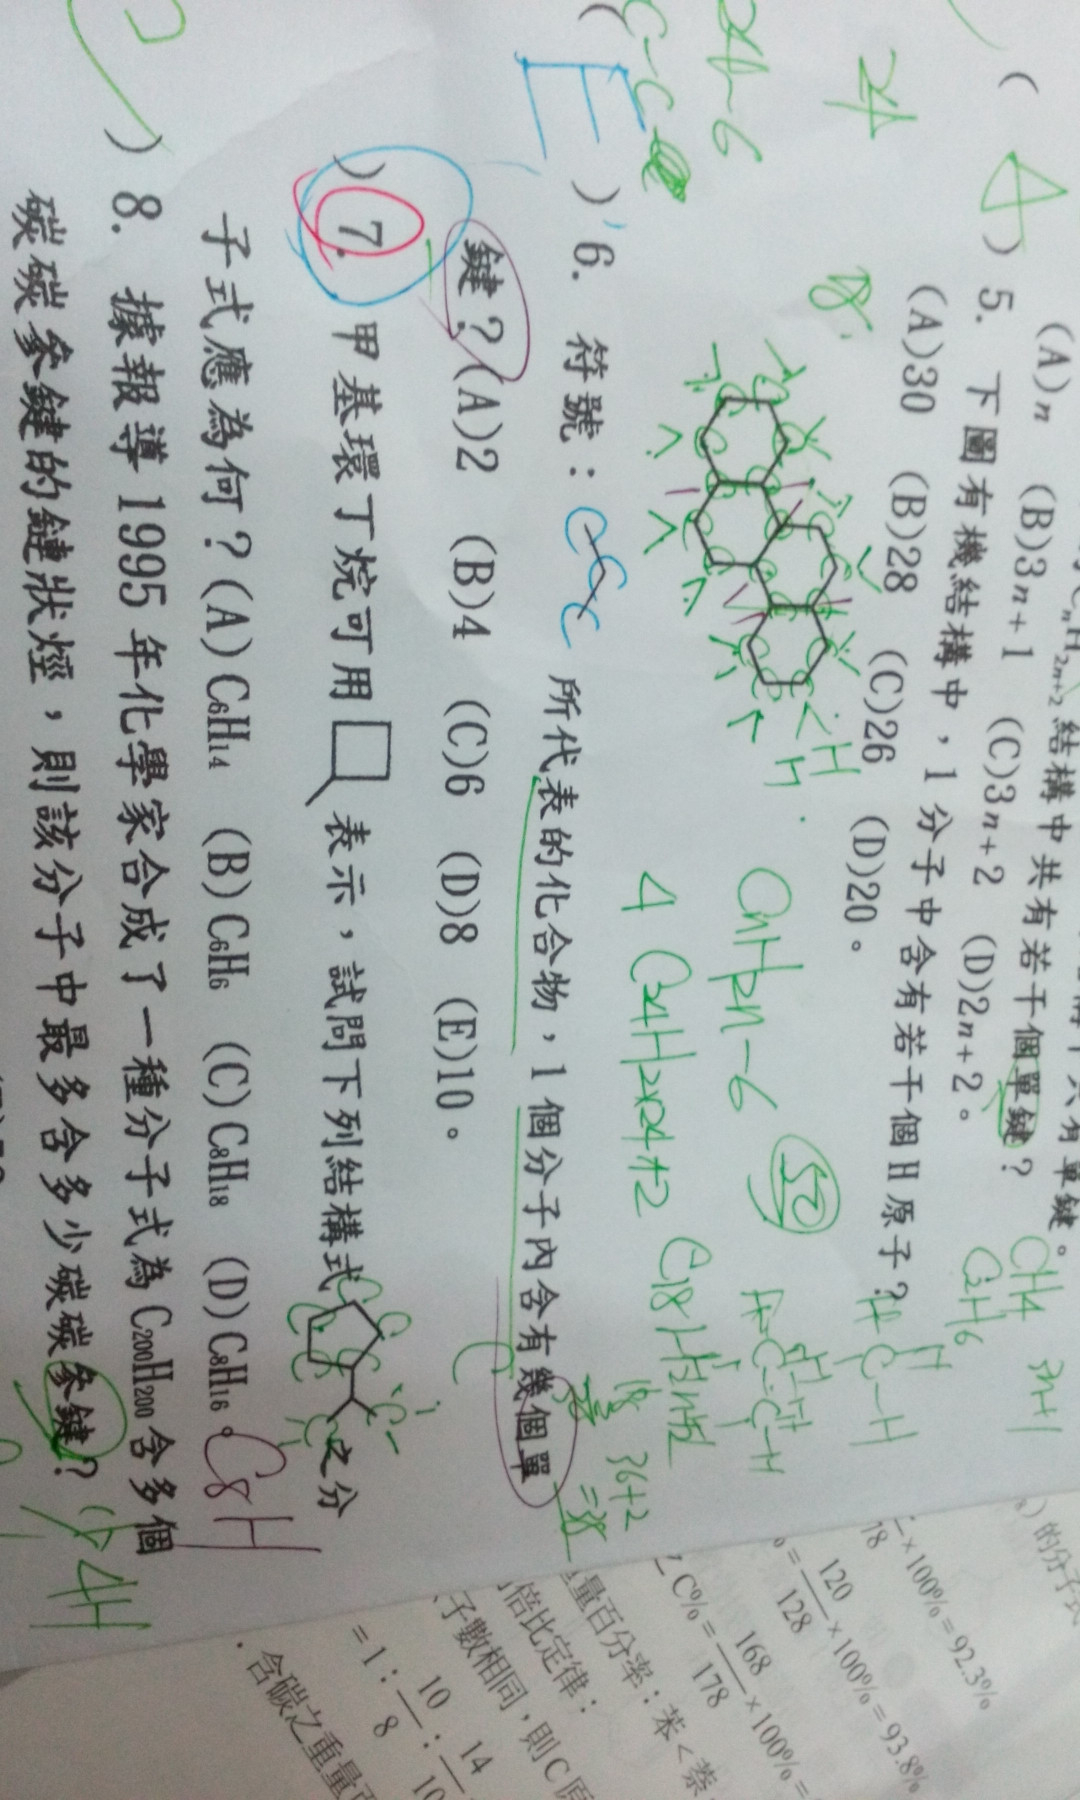 C2nH2n+2 結構中共有若干個單鍵？
(A)n (B)3n+1 (C)3n+2 (D)2n+2。
CH4
C2H6
3n+1
(4) 5. 下圖有機結構中，1分子中含有若干個H原子？
(A)30 (B)28 (C)26 (D)20。
24
24-6
18
H
H
CnH2n-6
52
4 C24H2x24+2
C18H
36+2
=38
(E) 6. 符號： C C C 所代表的化合物，1個分子內含有幾個單
鍵？(A)2 (B)4 (C)6 (D)8 (E)10。
) 7. 甲基環丁烷可用 表示，試問下列結構式 之分
子式應為何？(A)C6H14 (B)C6H6 (C)C8H18 (D)C8H16。
C8H
) 8. 據報導1995年化學家合成了一種分子式為C200H200含多個
碳碳參鍵的鏈狀烴，則該分子中最多含多少碳碳參鍵？
×100%=92.3%
18
120
128
×100%=93.8%
C%=
168
178
×100%=
量百分率：苯<萘
倍比定律：
子數相同，則C原
=1： 10/8 ： 14/10
含碳之重量百
的分子式